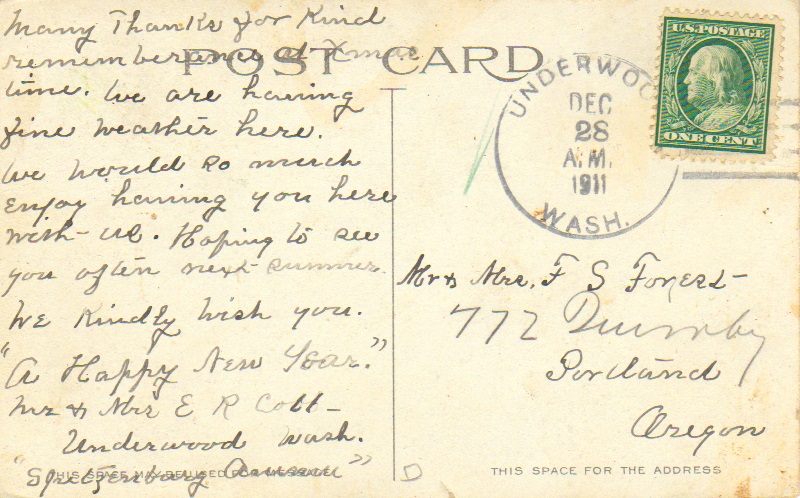 POST CARD
Many Thanks for Kind
rememberance at Xmas
time. We are having
fine weather here.
We would so much
Enjoy having you here
with us. Hoping to see
you often next summer.
We Kindly Wish you.
"A Happy New Year."
Mr & Mrs E R Cobb
Underwood Wash.
"Spitzenburg
THIS SPACE MAY BE USED FOR MESSAGE
U.S. POSTAGE
ONE CENT
UNDERWOOD
DEC
28
A.M.
1911
WASH.
Mr & Mrs. F S Forest
772 Quimby
Portland
Oregon
D
THIS SPACE FOR THE ADDRESS